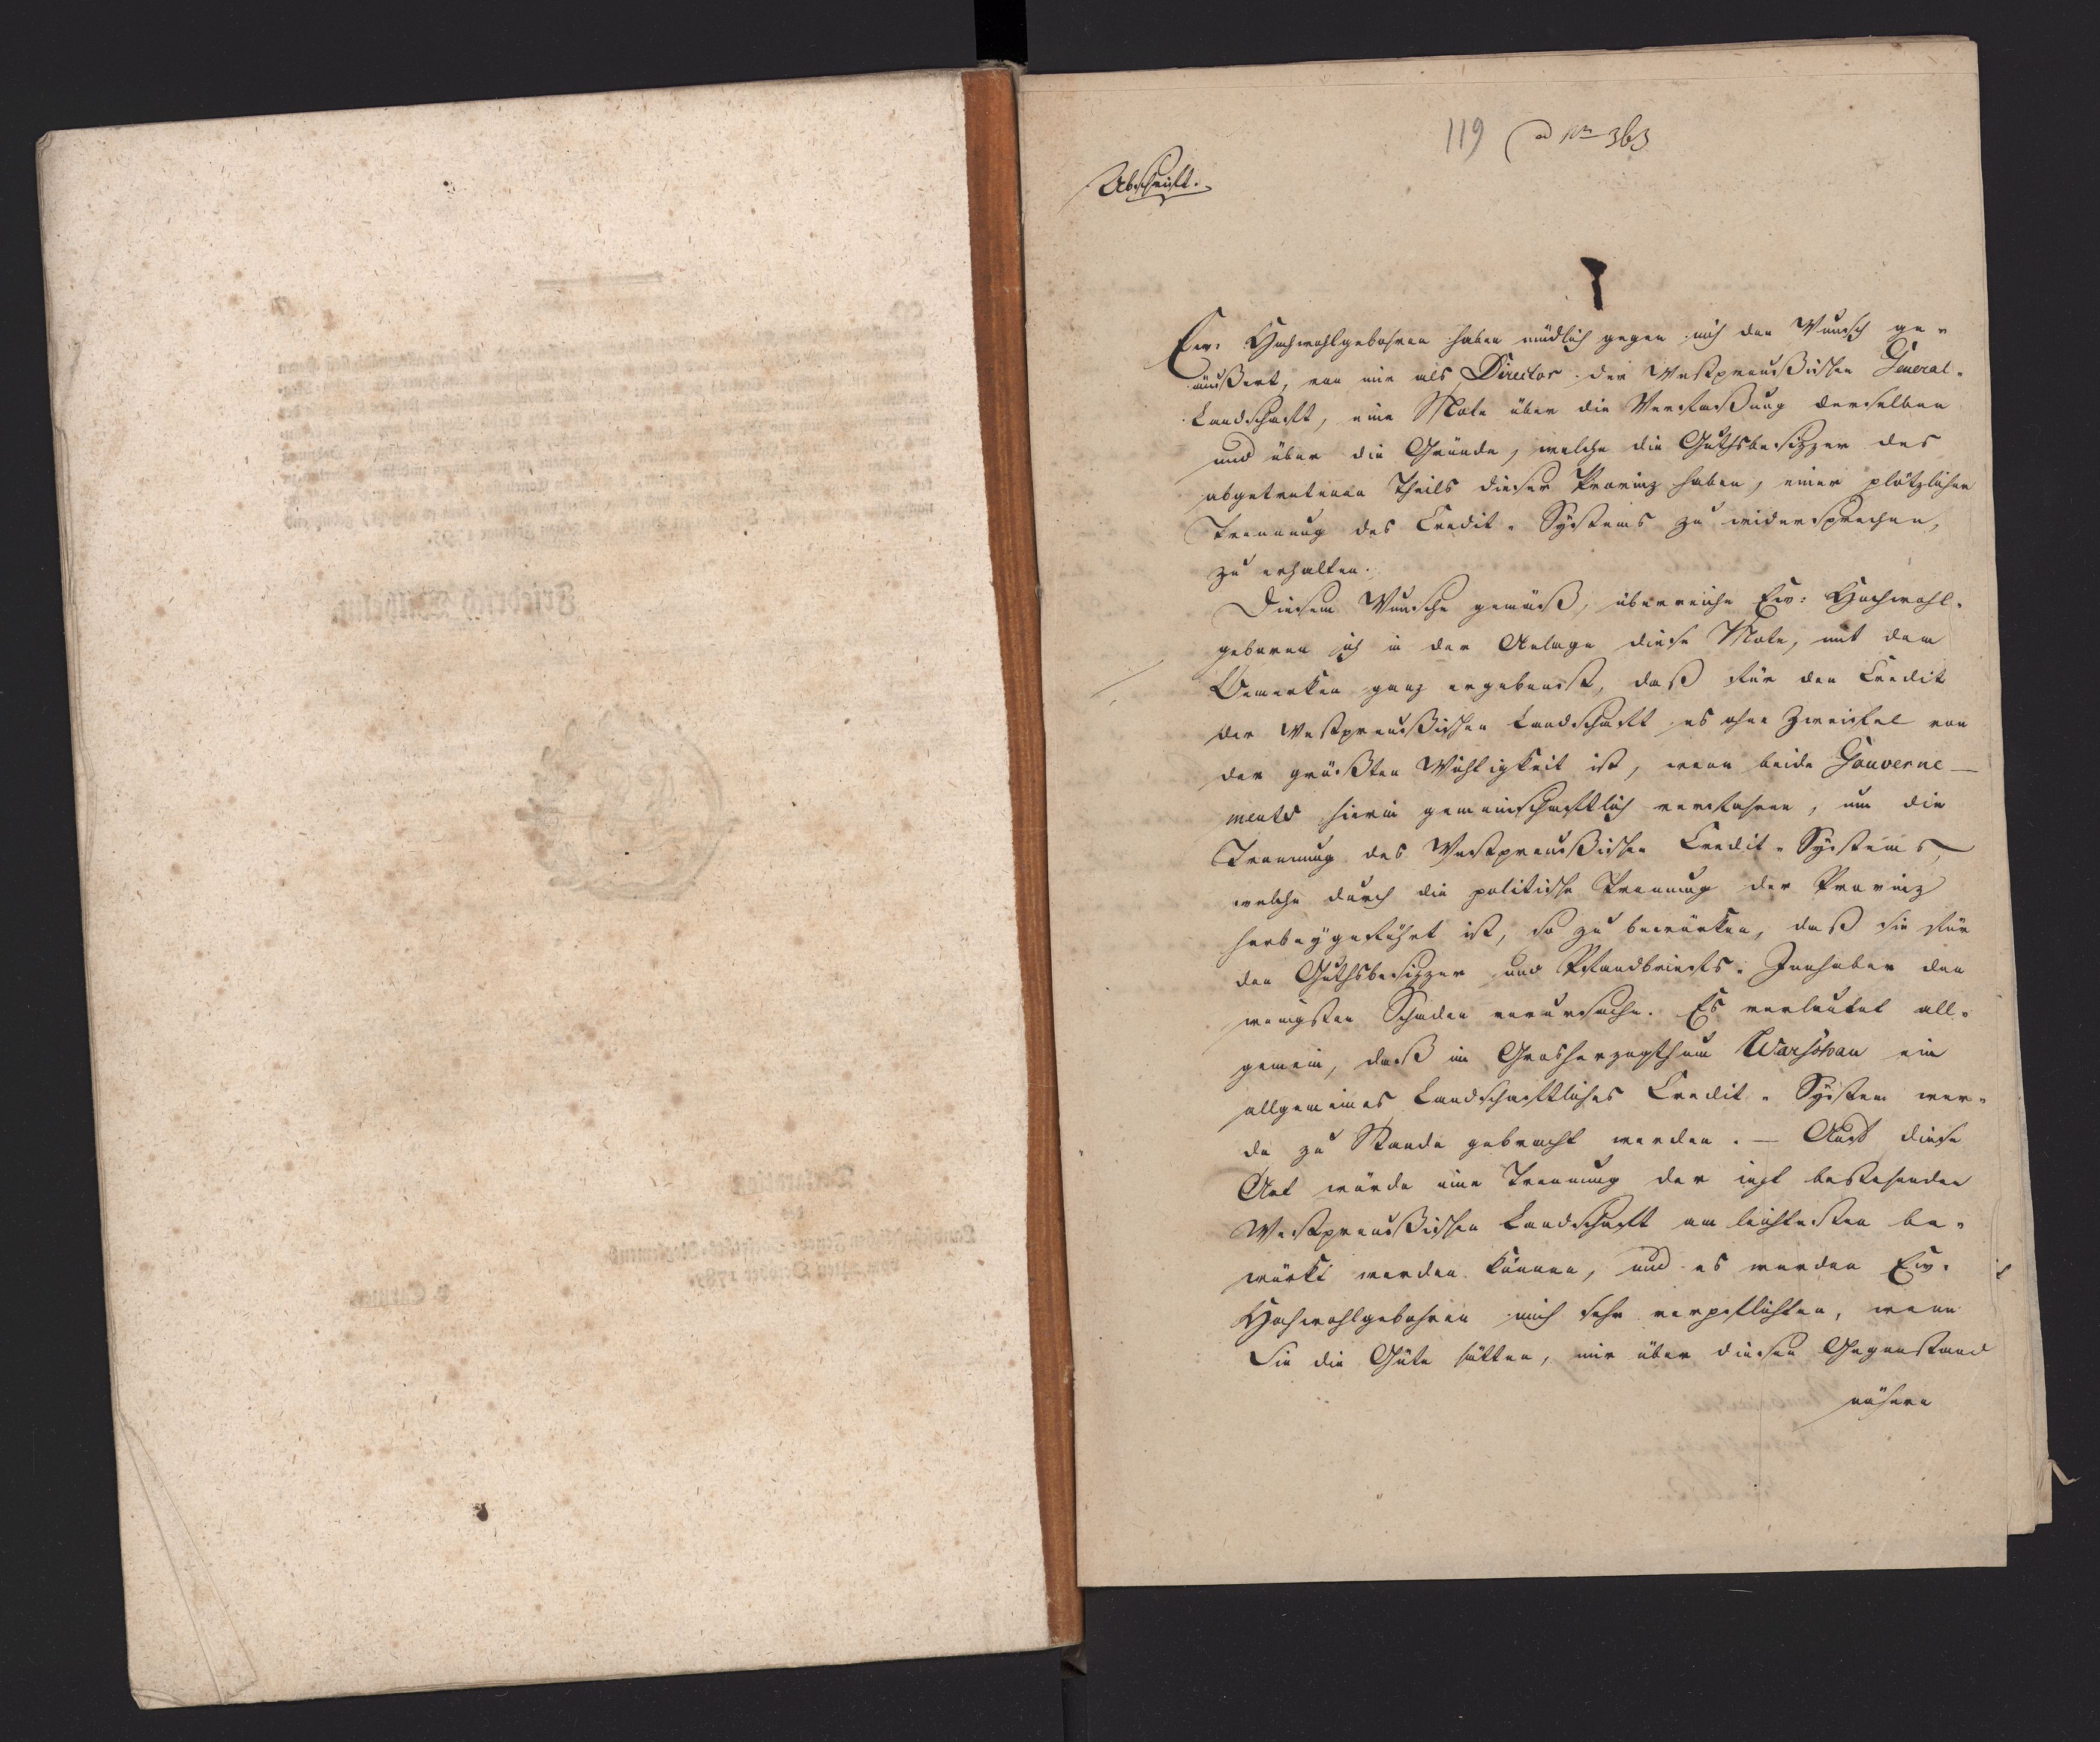 119 ad Nro 363
Abschrift.
Ew: Hochwohlgebohren haben mündlich gegen mich den Wunsch ge-
äußert, von mir als Director der Westpreußischen General-
Landschaft, eine Note über die Verfaßung derselben
und über die Gründe, welche die Guthsbesizzer des
abgetretenen Theils dieser Provinz haben, einer plötzlichen
Trennung des Credit-Systems zu widersprechen,
zu erhalten.
Diesem Wunsche gemäß, überreiche Ew: Hochwohl-
geboren ich in der Anlage diese Note, mit dem
Bemerken ganz ergebenst, daß für den Credit
der Westpreußischen Landschaft es ohne Zweifel von
der größten Wichtigkeit ist, wenn beide Gouverne-
ments hierin gemeinschaftlich verfahren, um die
Trennung des Westpreußischen Credit-Systems,
welche durch die politische Trennung der Provinz
herbeygeführt ist, so zu bewürken, daß sie für
den Guthsbesizzer und Pfandbriefs-Innhaber den
wenigsten Schaden verursache. Es verlautet all-
gemein, daß im Grosherzogthum Warschau ein
allgemeines Landschaftliches Credit-System wer-
de zu Stande gebracht werden. — Auf diese
Art würde eine Trennung der iezt bestehenden
Westpreußischen Landschaft am leichtesten be-
würkt werden können, und es werden Ew.
Hochwohlgebohren mich sehr verpflichten, wenn
Sie die Güte hätten, mir über diesen Gegenstand
nähere